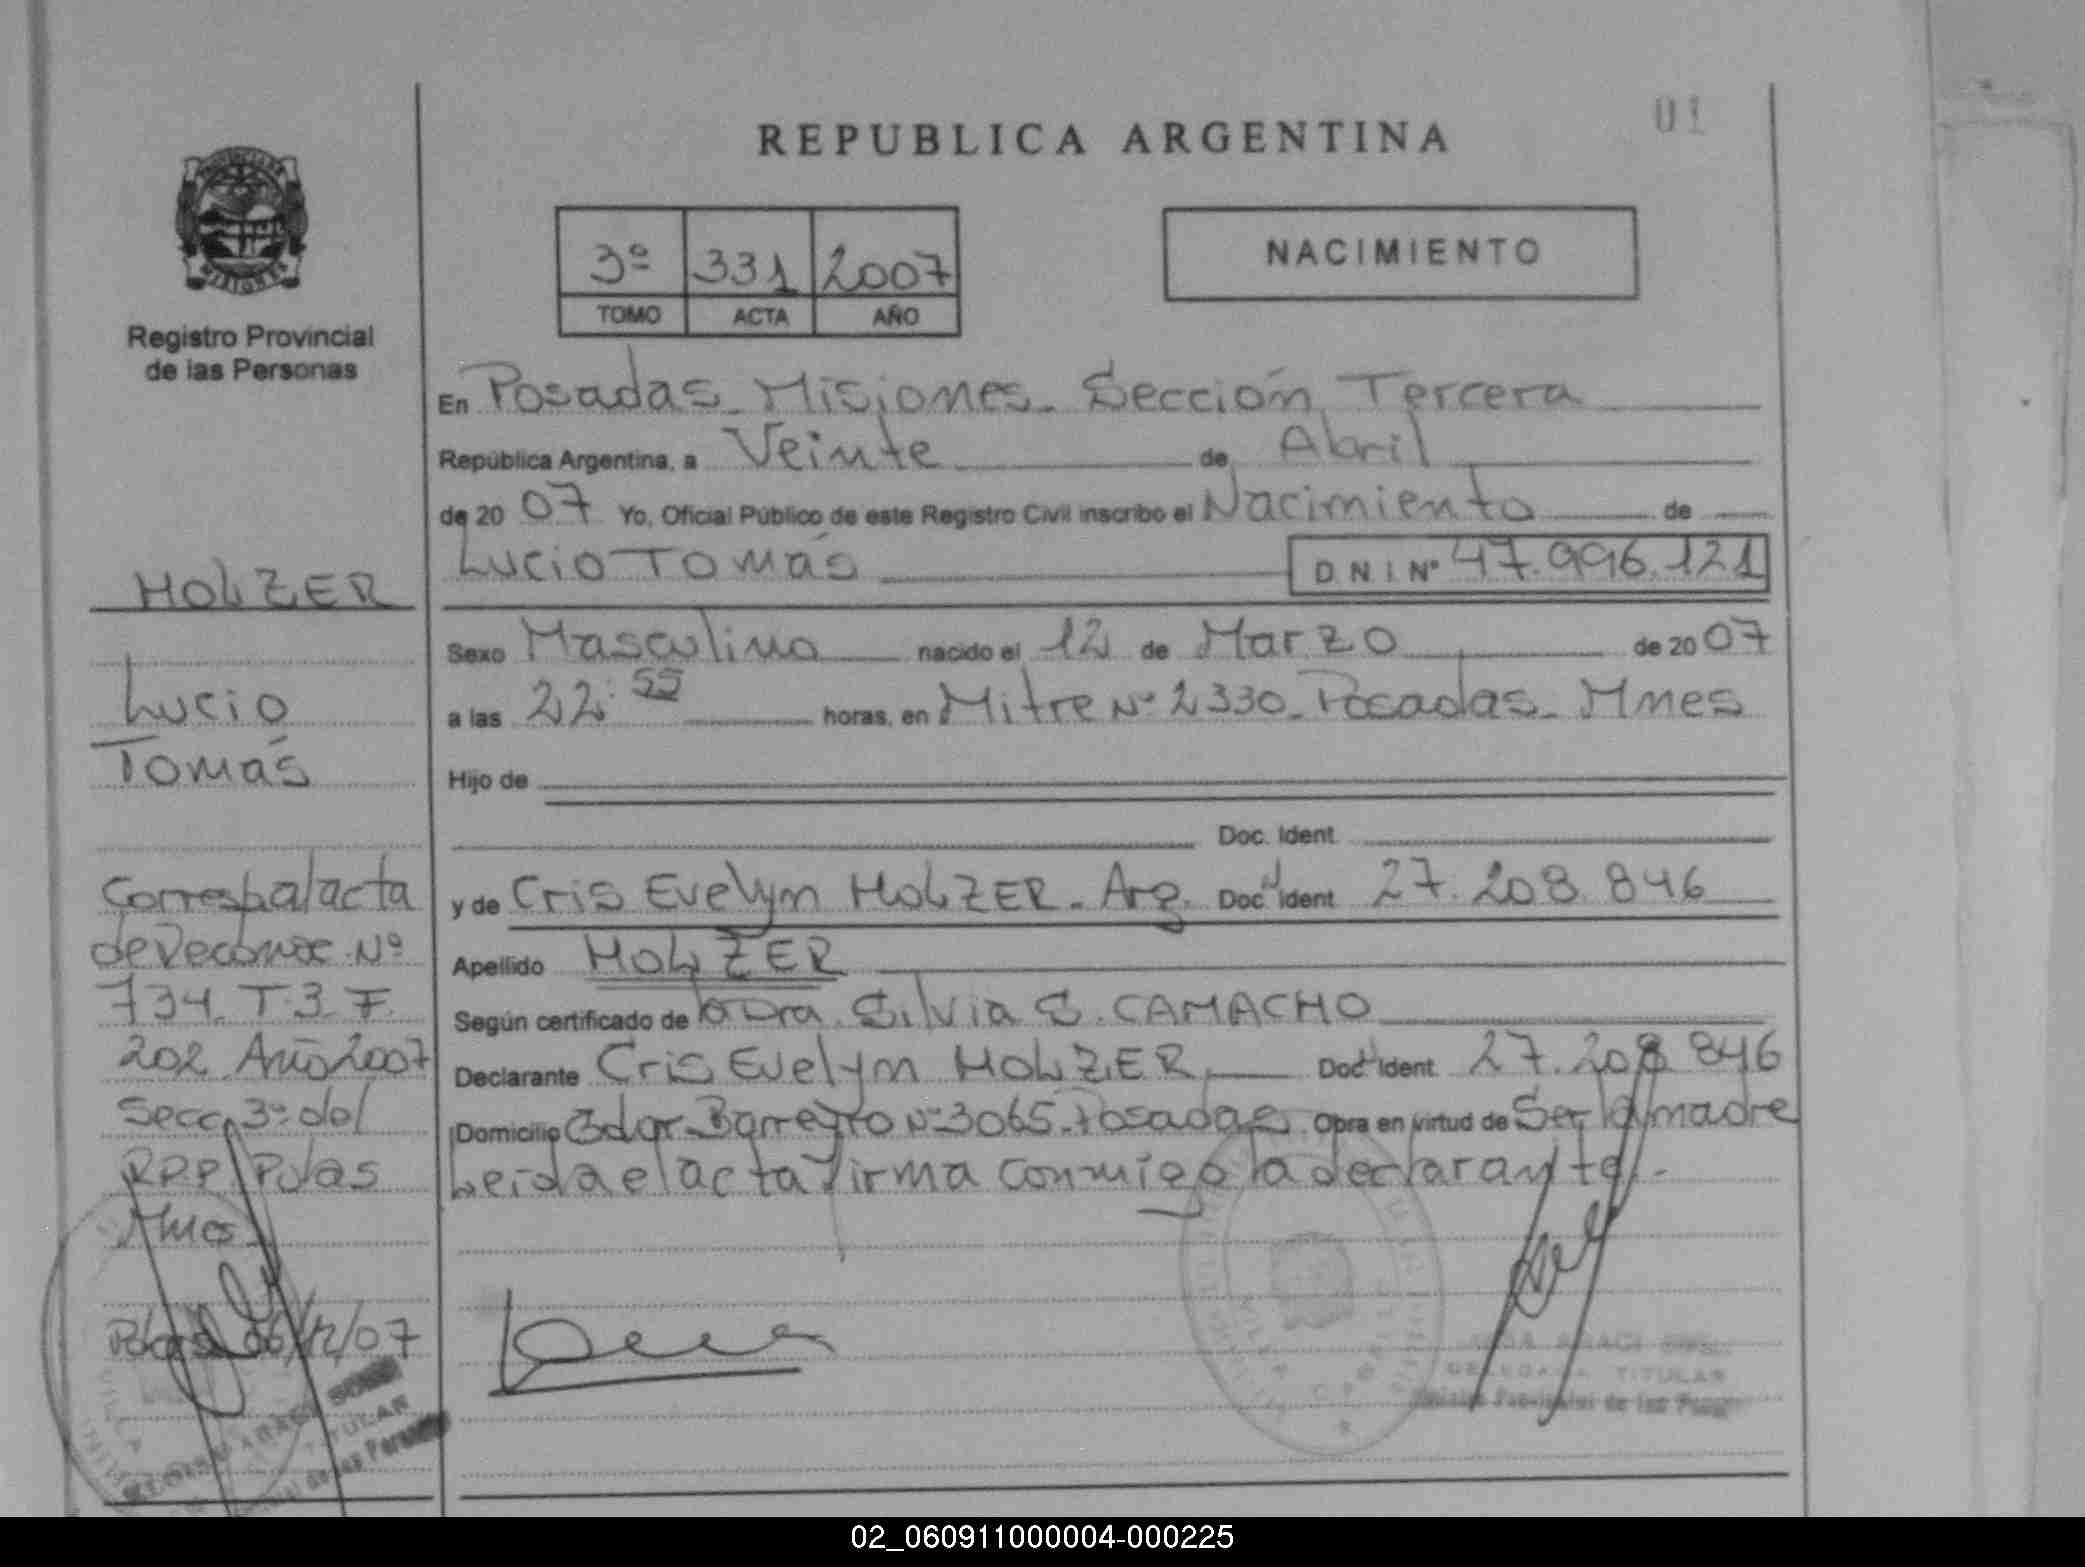 01
REPUBLICA ARGENTINA
3º 331 2007
TOMO ACTA AÑO
NACIMIENTO
Registro Provincial
de las Personas
En Posadas - Misiones - Sección Tercera
República Argentina, a Veinte de Abril
de 2007 Yo, Oficial Público de este Registro Civil inscribo el Nacimiento de
Lucio Tomás D N I Nº 47.996.121
Sexo Masculino nacido el 12 de Marzo de 2007
a las 22:55 horas, en Mitre Nº 2330 - Posadas - Mnes
Hijo de
Doc. Ident.
y de Cris Evelyn HOLZER - Arg. Doc. Ident. 27.208.846
Apellido HOLZER
Según certificado de la Dra. Silvia S. CAMACHO
Declarante Cris Evelyn HOLZER Doc. Ident. 27.208.846
Domicilio Edgr Barreyro Nº 3065 - Posadas Obra en virtud de Ser la madre
Leida el acta firma conmigo la declarante.-
HOLZER
Lucio
Tomás
Corresp al acta
de Reconoc Nº
734 T. 3 F.
202 Año 2007
Secc 3º del
RPP Pdas
Mnes
06/12/07
TITULAR
TITULAR
02_060911000004-000225